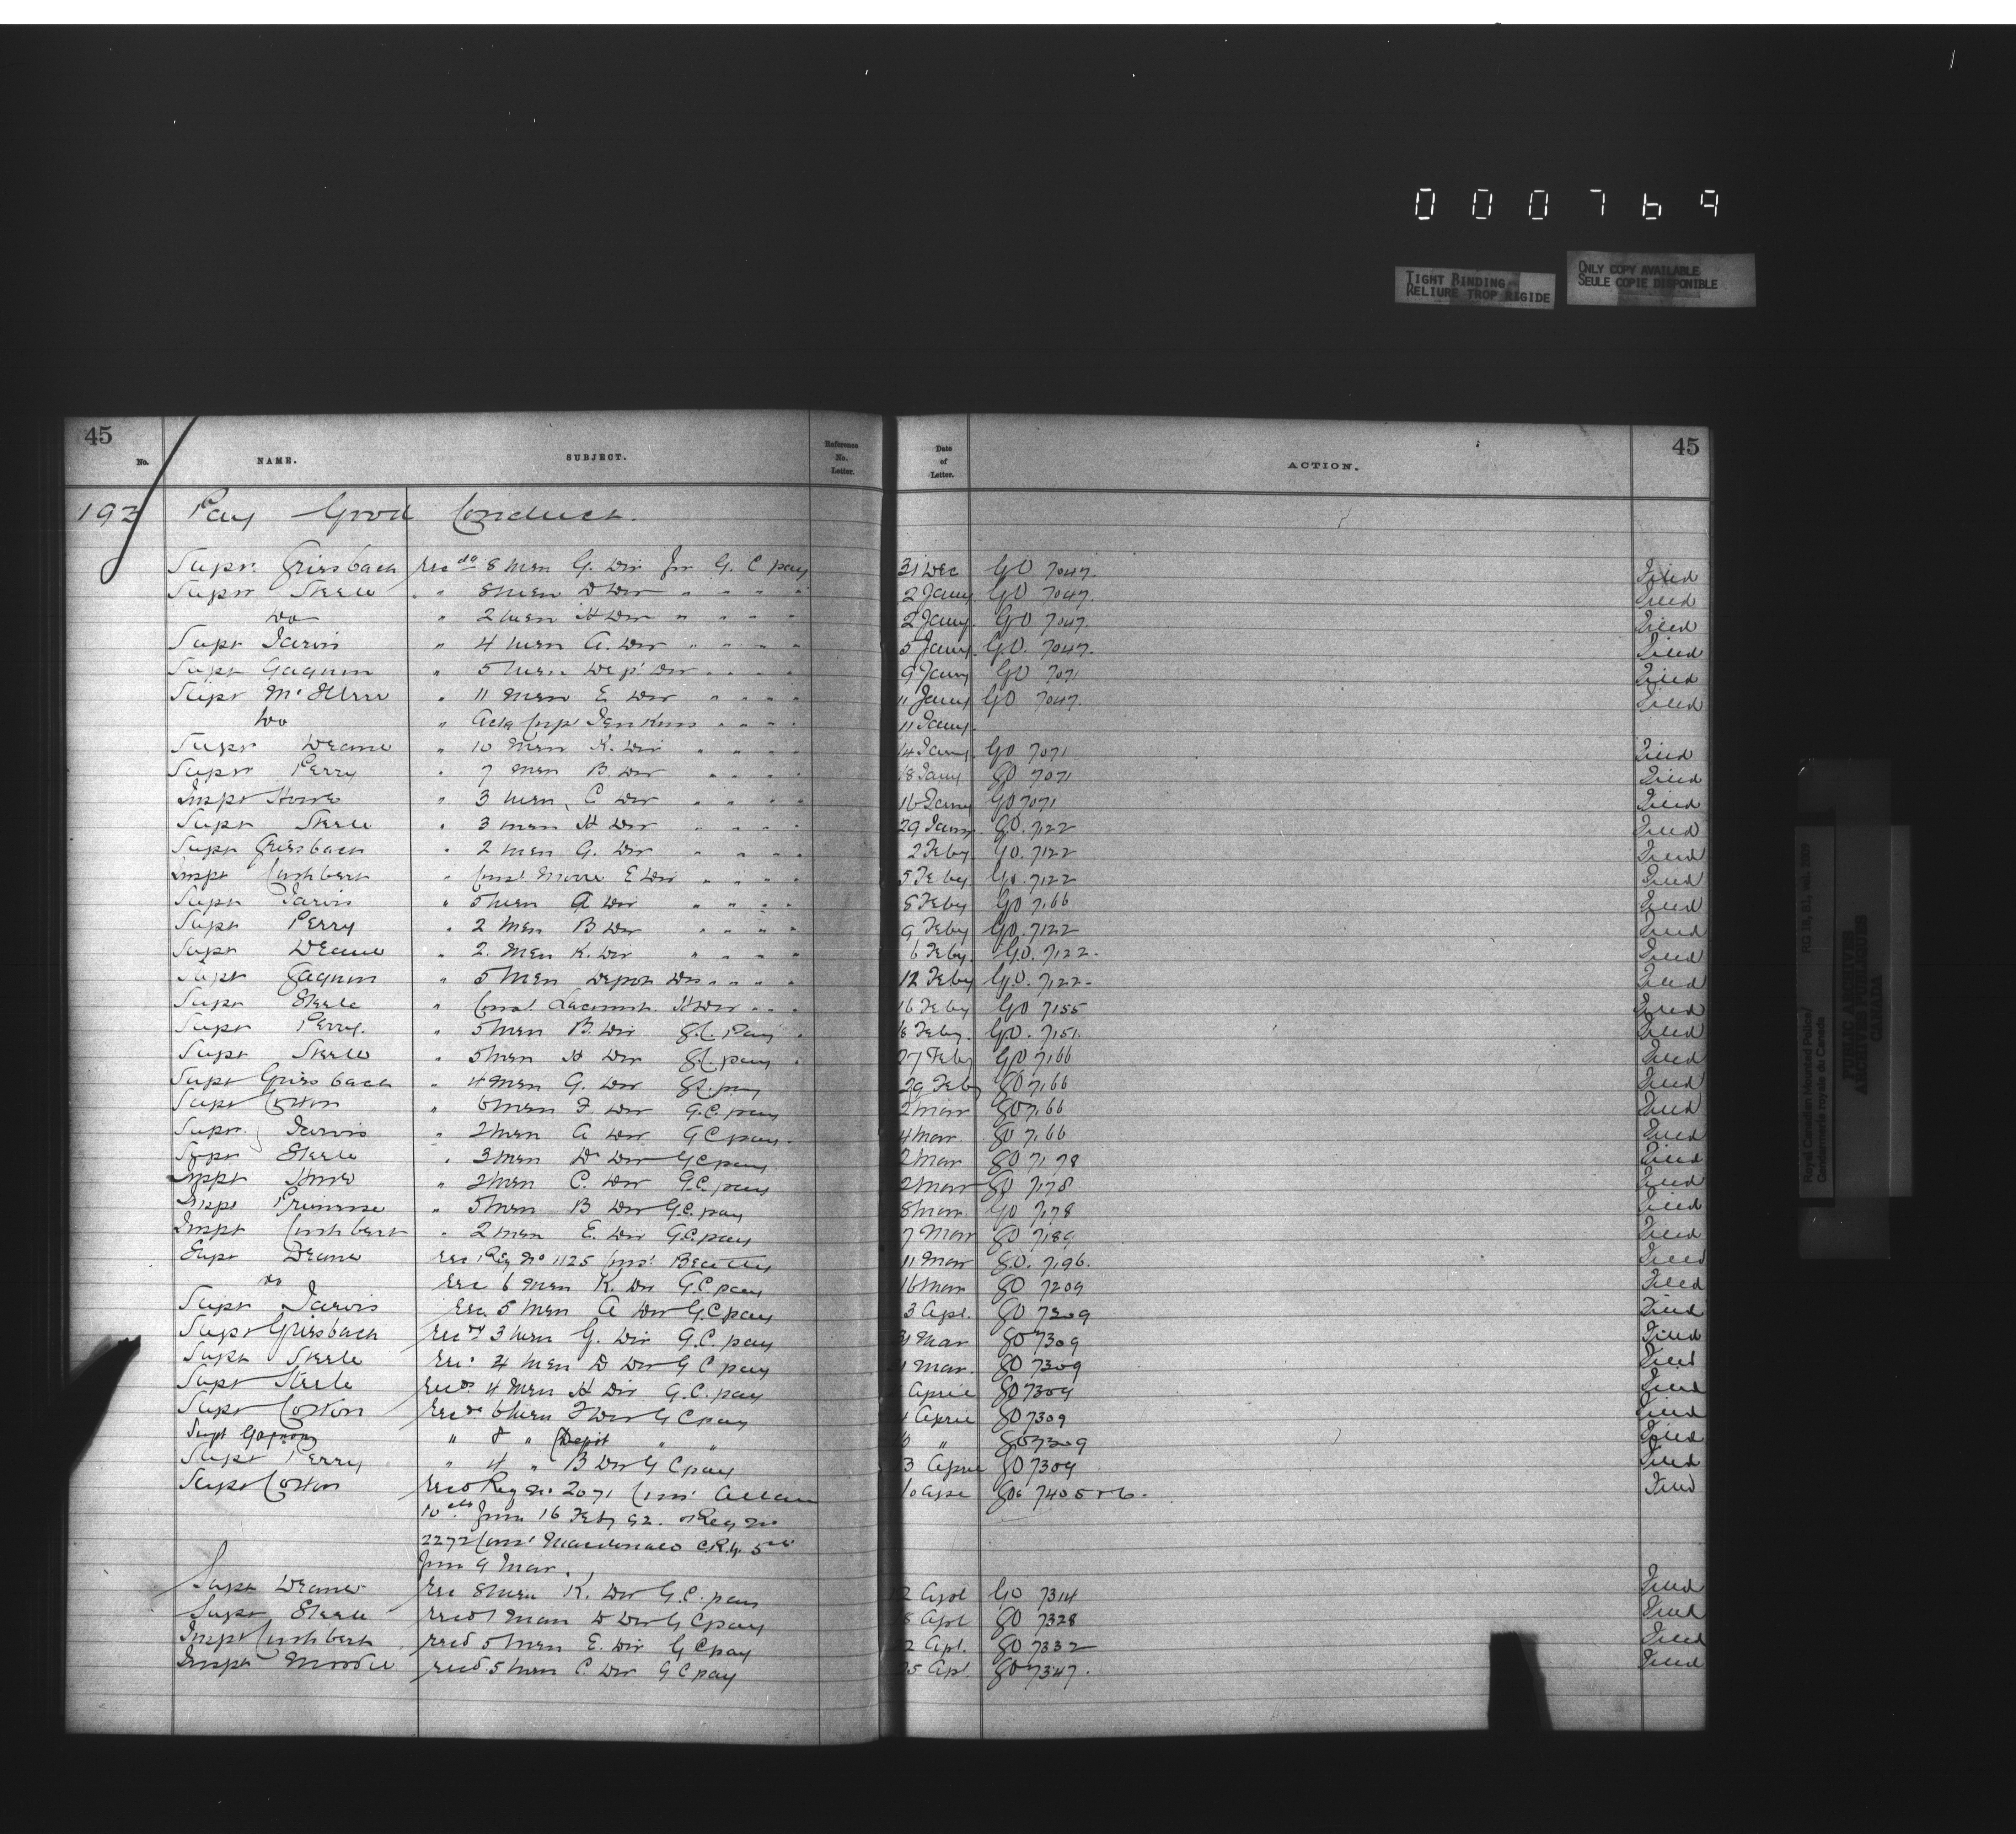 000769
TIGHT BINDING
RELIURE TROP RIGIDE
ONLY COPY AVAILABLE
SEULE COPIE DISPONIBLE
45 45
No. NAME. SUBJECT. Reference No. Letter. Date of Letter. ACTION.
193 Pay Good Conduct.
Supt. Griesbach rec ds 8 Men G. Div for G. C pay 31 Dec GO 7047. Filed
Supt Steele " 8 Men D Div " " " " 2 Jany GO 7047. Filed
Do " 2 men H Div " " " " 2 Jany GO 7047. Filed
Supt Jarvis " 4 Men A. Div " " " " 5 Jany. GO. 7047. Filed
Supt Gagnon " 5 Men Dept Div " " " " 9 Jany GO 7071 Filed
Supt McIllree " 11 Men E Div " " " " 11 Jany GO 7047. Filed
Do " Actg Corpl Jenkins " " " " 11 Jany.
Supt Deane " 10 Men K. Div " " " " 14 Jany GO 7071 Filed
Supt Perry " 7 Men B. Div " " " " 18 Jany GO 7071 Filed
Inspt Howe " 3 Men, C Div " " " " 16 Jany GO 7071 Filed
Supt Steele " 3 men H Div " " " " 29 Jany GO. 7122 Filed
Supt Griesbach " 2 men G. Div " " " " 2 Feby GO. 7122 Filed
Inspt Cuthbert " Const. Moore E Div " " " " 5 Feby GO. 7122 Filed
Supt Jarvis " 5 Men A Div " " " " 8 Feby GO 7166 Filed
Supt Perry " 2 Men B Div " " " " 9 Feby GO. 7122 Filed
Supt Deane " 2. Men K. Div " " " " 6 Feby GO. 7122. Filed
Supt Gagnon " 5 Men Depot Div " " " " 12 Feby GO. 7122. Filed
Supt Steele " Const. H Div " " " 16 Feby GO 7155 Filed
Supt Perry. " 5 Men B. Div G.C. Pay 16 Feby. GO. 7151. Filed
Supt Steele " 5 Men H Div G.C. pay 27 Feby GO 7166 Filed
Supt Griesbach " 4 Men G. Div G.C. pay 29 Feby GO 7166 Filed
Supt Cotton " 6 Men F. Div G.C. pay 2 Mar GO 7166 Filed
Supt. Jarvis " 2 Men A Div G.C pay. 4 Mar. GO 7166 Filed
Supt Steele " 3 Men D Div G.C pay 2 Mar GO 7178 Filed
Inspt Howe " 2 Men C. Div G.C. pay 2 Mar GO 7178 Filed
Inspt Primrose " 5 Men B Div G.C. pay 8 Mar. GO 7178 Filed
Inspt Cuthbert " 2 men E. Div G.C. pay 7 Mar GO 7189 Filed
Supt Deane rec Reg No 1125 Const Beatty 11 Mar G.O. 7196. Filed
do rec 6 Men K. Div G.C. pay 16 Mar GO 7209 Filed
Supt Jarvis rec 5 Men A Div G.C pay 3 Apl. GO 7309 Filed
Supt Griesbach rec ds 3 Men G. Div G.C. pay Mar GO 7309 Filed
Supt Steele rec. 4 Men D Div G C pay Mar. GO 7309 Filed
Supt Steele recds 4 Men H Div G.C. pay April GO 7309 Filed
Supt Cotton recds 6 Men F Div G C pay April GO 7309 Filed
Supt Gagnon " 8 " Depot " " " GO 7309 Filed
Supt Perry " 4 " B Div G C pay 3 April GO 7309 Filed
Supt Cotton recd Reg No 2071 Const Allan 10 Apl GOs 7405 & 6. Filed
10 cts from 16 Feby 92. & Reg No
2272 Const Macdonald 5 cts
from 9 Mar.
Supt Deane rec 8 Men K. Div G.C. pay 2 Apl GO 7314 Filed
Supt Steele recd 1 Man D Div G C pay 8 Apl GO 7328 Filed
Inspt Cuthbert recd 5 Men E. Div G C pay 2 Apl. GO 7332 Filed
Inspt Moodie recd. 5 Men C Div G C pay 25 Apl GO 7347. Filed
Royal Canadian Mounted Police/ RG 18, B1, vol. 2009
Gendarmerie royale du Canada
PUBLIC ARCHIVES
ARCHIVES PUBLIQUES
CANADA